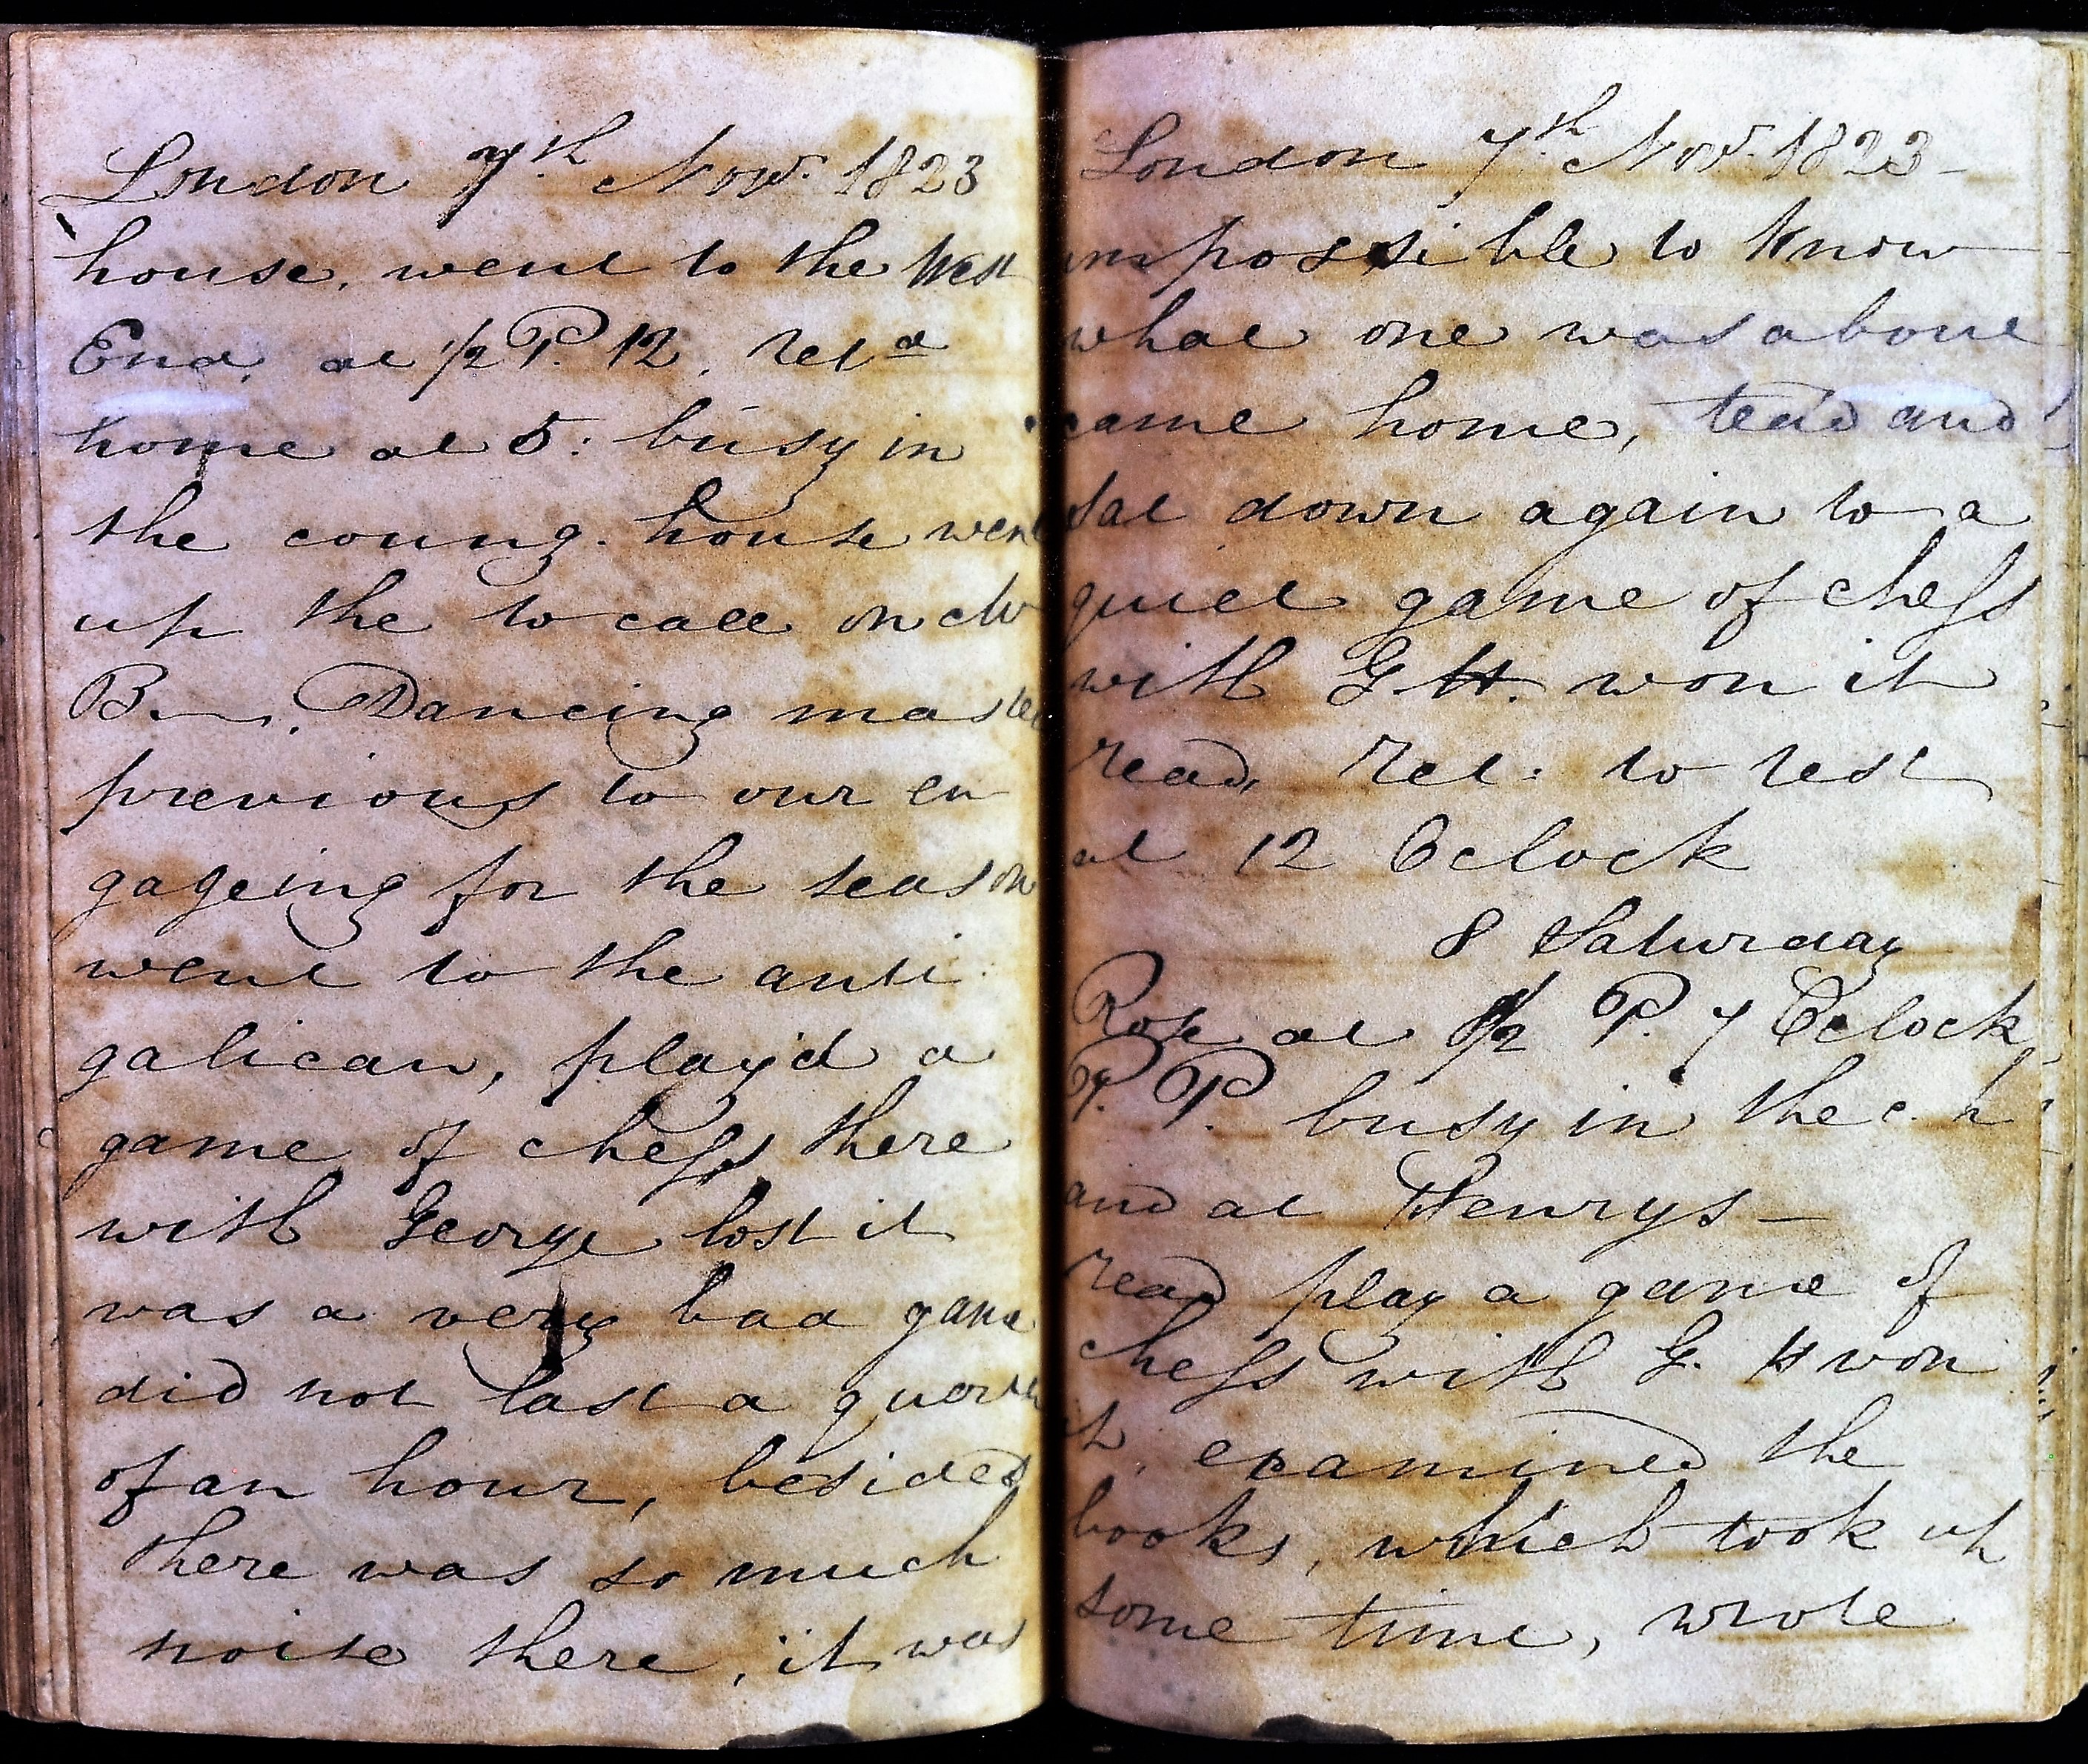 London 7th Novr. 1823
house, went to the West
End, at 1/2 P. 12, retd
home at 5: busy in
the coung. house went
up the to call on Mr
B——, Dancing master
previous to our en
gageing for the season
went to the anti
galican, play'd a
game of chess there
with George lost it
was a very bad game
did not last a quarter
of an hour, besides
there was so much
noise there, it was
London 7th Novr. 1823
impossible to know
what one was about
came home, tead and
sat down again to a
quiet game of chess
with G. H. won it
read, ret. to rest
at 12 Oclock
8 Saturday
Rose at 1/2 P. 7 Oclock
P. P. busy in the c. h
and at Henrys—
read play a game of
chess with G. H won
it, examined the
books, which took up
some time, wrote